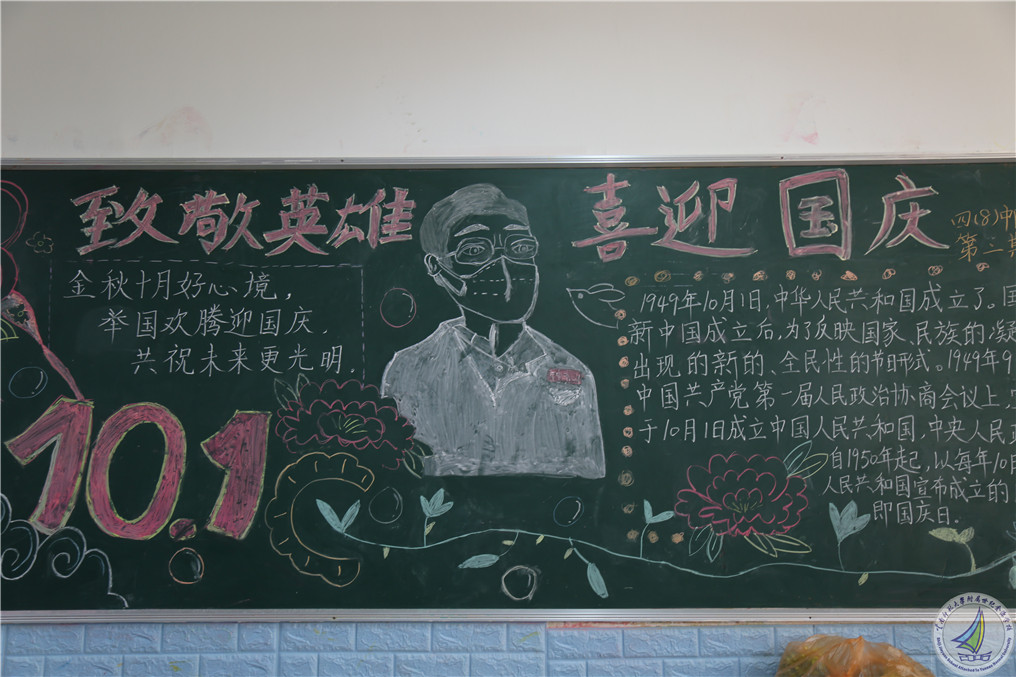 致敬英雄
喜迎国庆
四(8)中
第三期
金秋十月好心境，
举国欢腾迎国庆，
共祝未来更光明，
10.1
1949年10月1日，中华人民共和国成立了。国
新中国成立后，为了反映国家、民族的凝
出现的新的、全民性的节日形式。1949年9
中国共产党第一届人民政治协商会议上，
于10月1日成立中国人民共和国，中央人民政
自1950年起，以每年10月
人民共和国宣布成立的
即国庆日.